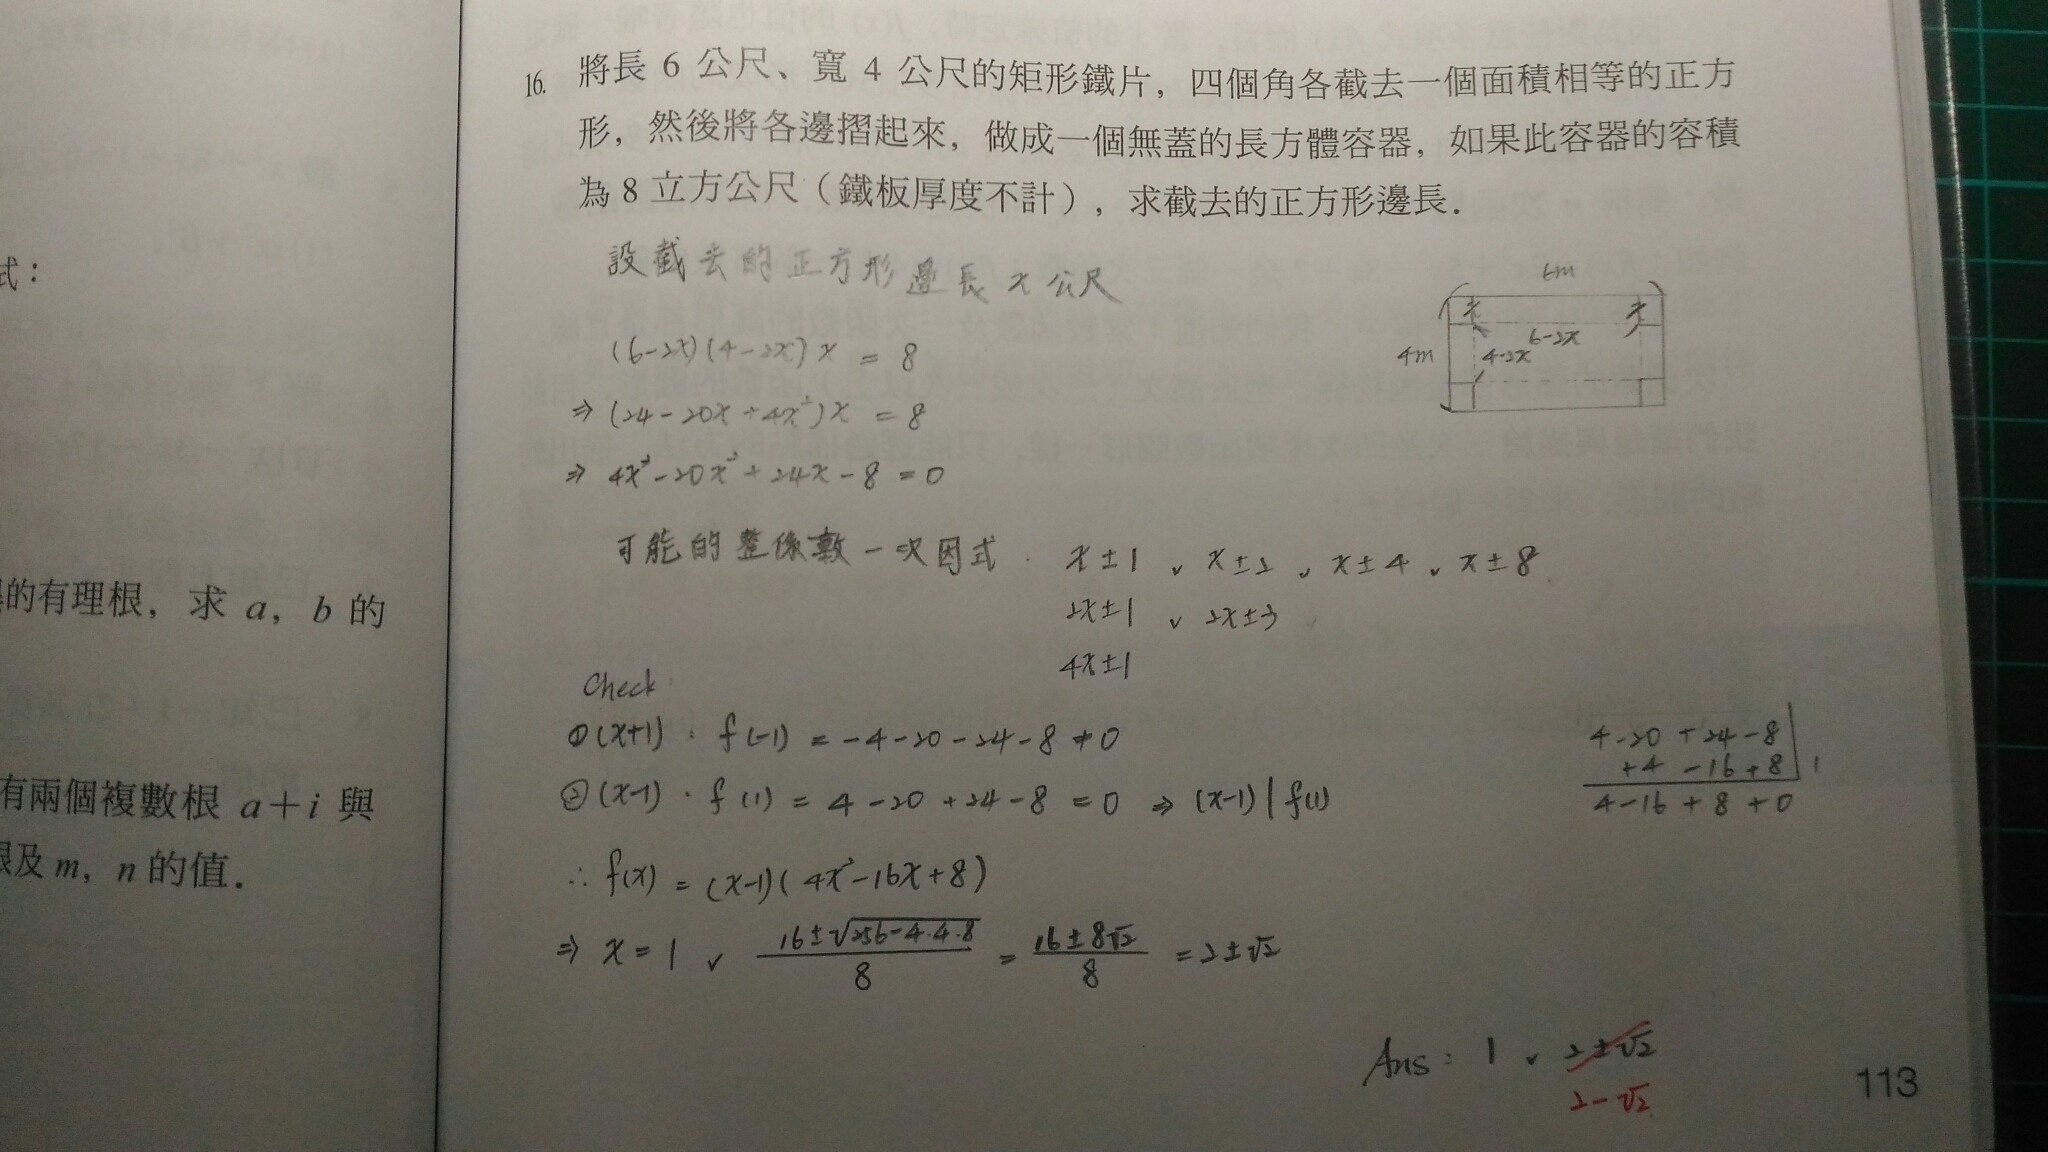 式：
的有理根，求 a，b 的
有兩個複數根 a＋i 與
及 m，n 的值．
16. 將長 6 公尺、寬 4 公尺的矩形鐵片，四個角各截去一個面積相等的正方
形，然後將各邊摺起來，做成一個無蓋的長方體容器，如果此容器的容積
為 8 立方公尺（鐵板厚度不計），求截去的正方形邊長．
設截去的正方形邊長 x 公尺
6m
4m
x
x
6-2x
4-2x
(6-2x)(4-2x)x = 8
⇒ (24-20x+4x²)x = 8
⇒ 4x³-20x²+24x-8=0
可能的整係數一次因式：x±1、x±2、x±4、x±8
2x±1、2x±
4x±1
Check:
①(x+1)：f(-1) = -4-20-24-8≠0
②(x-1)：f(1) = 4-20+24-8=0 ⇒ (x-1)|f(1)
4-20+24-8
+4-16+8 | 1
4-16+8+0
∴ f(x) = (x-1)(4x²-16x+8)
⇒ x=1、(16±√(256-4·4·8))/8 = (16±8√2)/8 = 2±√2
Ans：1、2±√2
2-√2
113